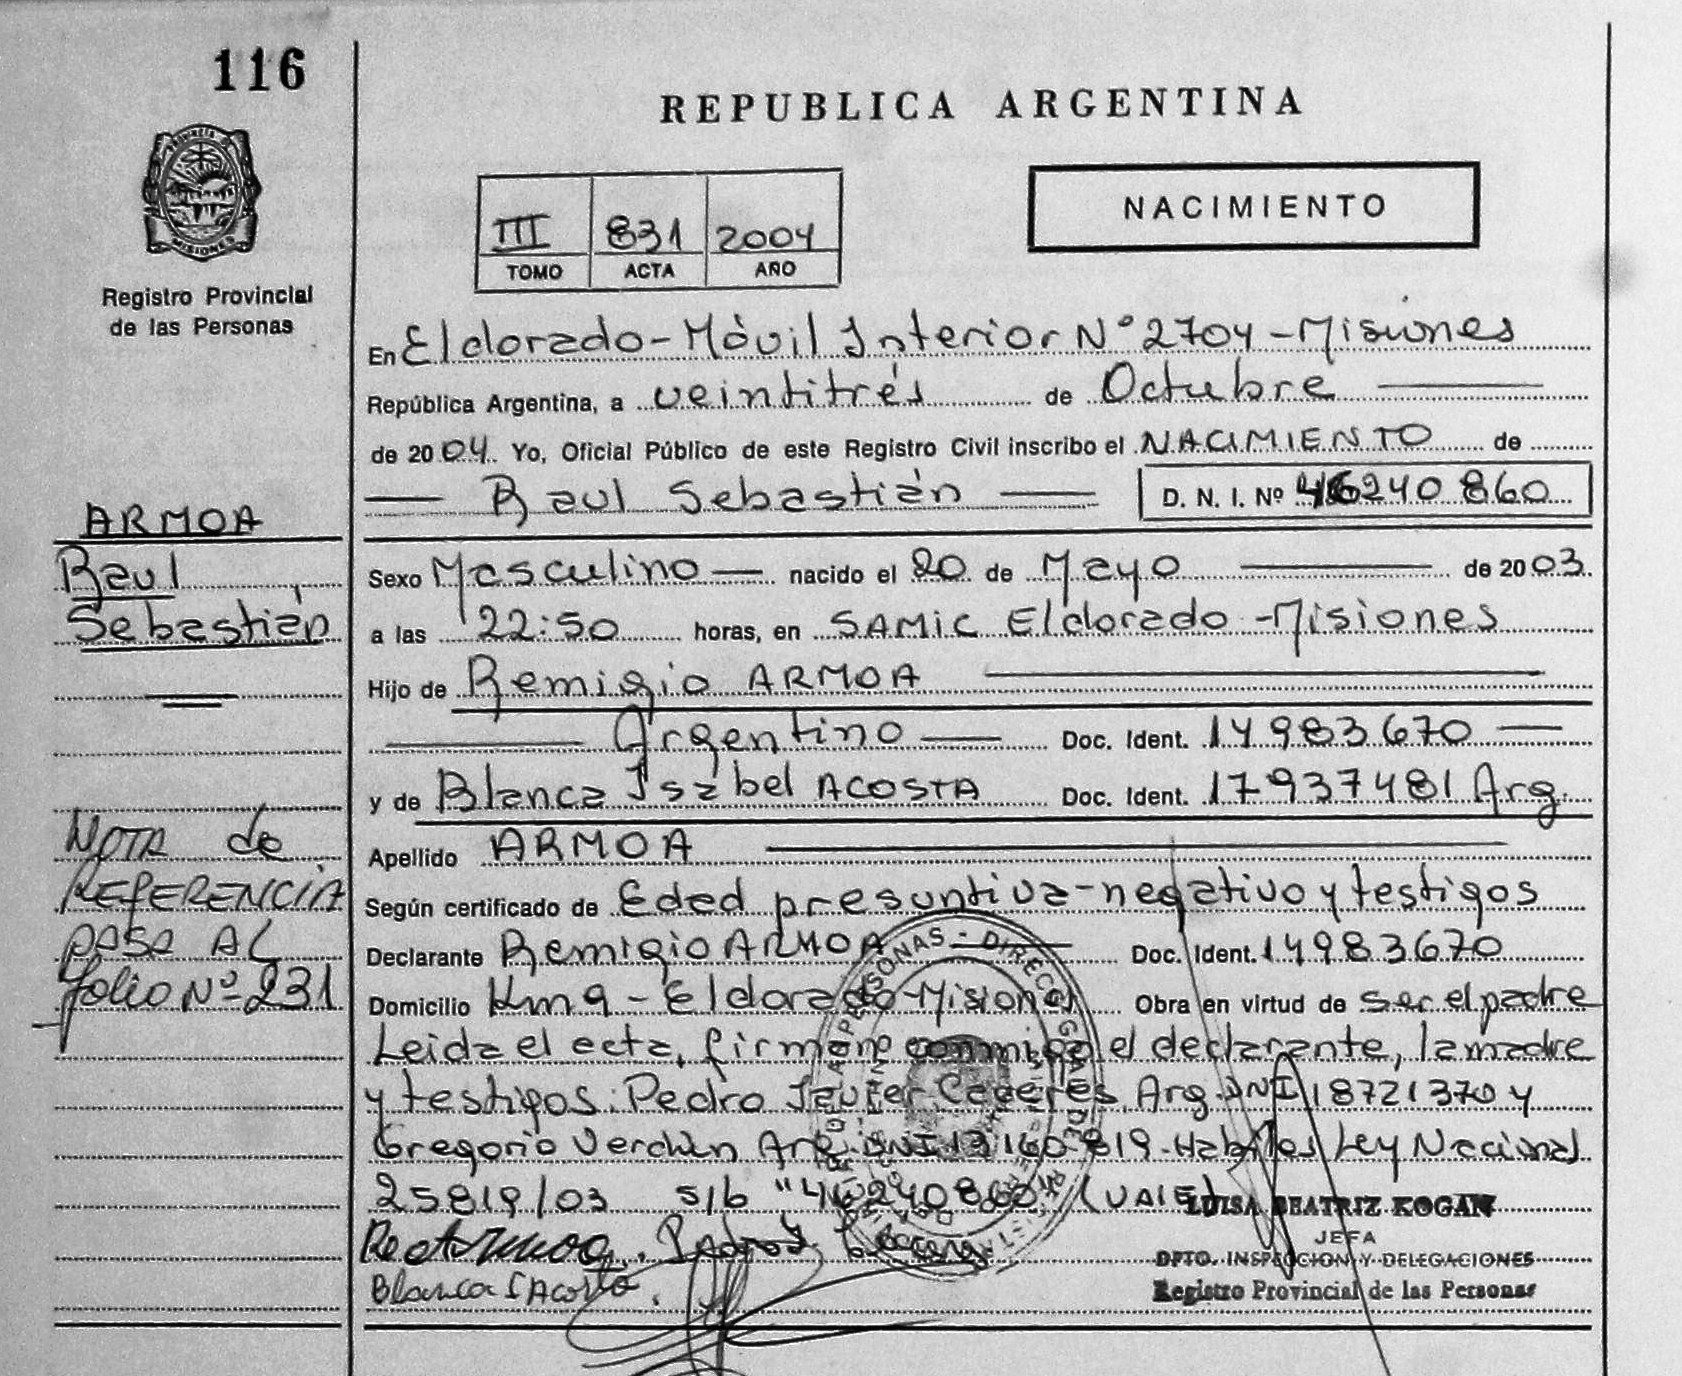 116
REPUBLICA ARGENTINA
PROVINCIA DE
MISIONES
Registro Provincial
de las Personas
III 831 2004
TOMO ACTA AÑO
NACIMIENTO
En Eldorado - Móvil Interior N° 2704 - Misiones
República Argentina, a veintitrés de Octubre
de 2004. Yo, Oficial Público de este Registro Civil inscribo el NACIMIENTO de
Raul Sebastián D. N. I. Nº 46240860
ARMOA
Raul
Sebastián
Sexo Masculino nacido el 20 de Mayo de 2003
a las 22:50 horas, en SAMIC Eldorado - Misiones
Hijo de Remigio ARMOA
Argentino Doc. Ident. 14983670
y de Blanca Isabel ACOSTA Doc. Ident. 17937481 Arg.
Apellido ARMOA
Según certificado de Edad presuntiva - negativo y testigos
Declarante Remigio ARMOA Doc. Ident. 14983670
Domicilio Km 9 - Eldorado - Misiones Obra en virtud de ser el padre
Leida el acta, firman conmigo el declarante, la madre
y testigos: Pedro Javier Caceres, Arg. DNI 18721370 y
Gregorio Verdun Arg. DNI 13160819 - Habiles Ley Nacional
25819/03 s/b "46240860" (VALE)
NOTA de
REFERENCIA
PASA AL
folio Nº 231
Blanca I Acosta.
LUISA BEATRIZ KOGAN
JEFA
DPTO. INSPECCION Y DELEGACIONES
Registro Provincial de las Personas